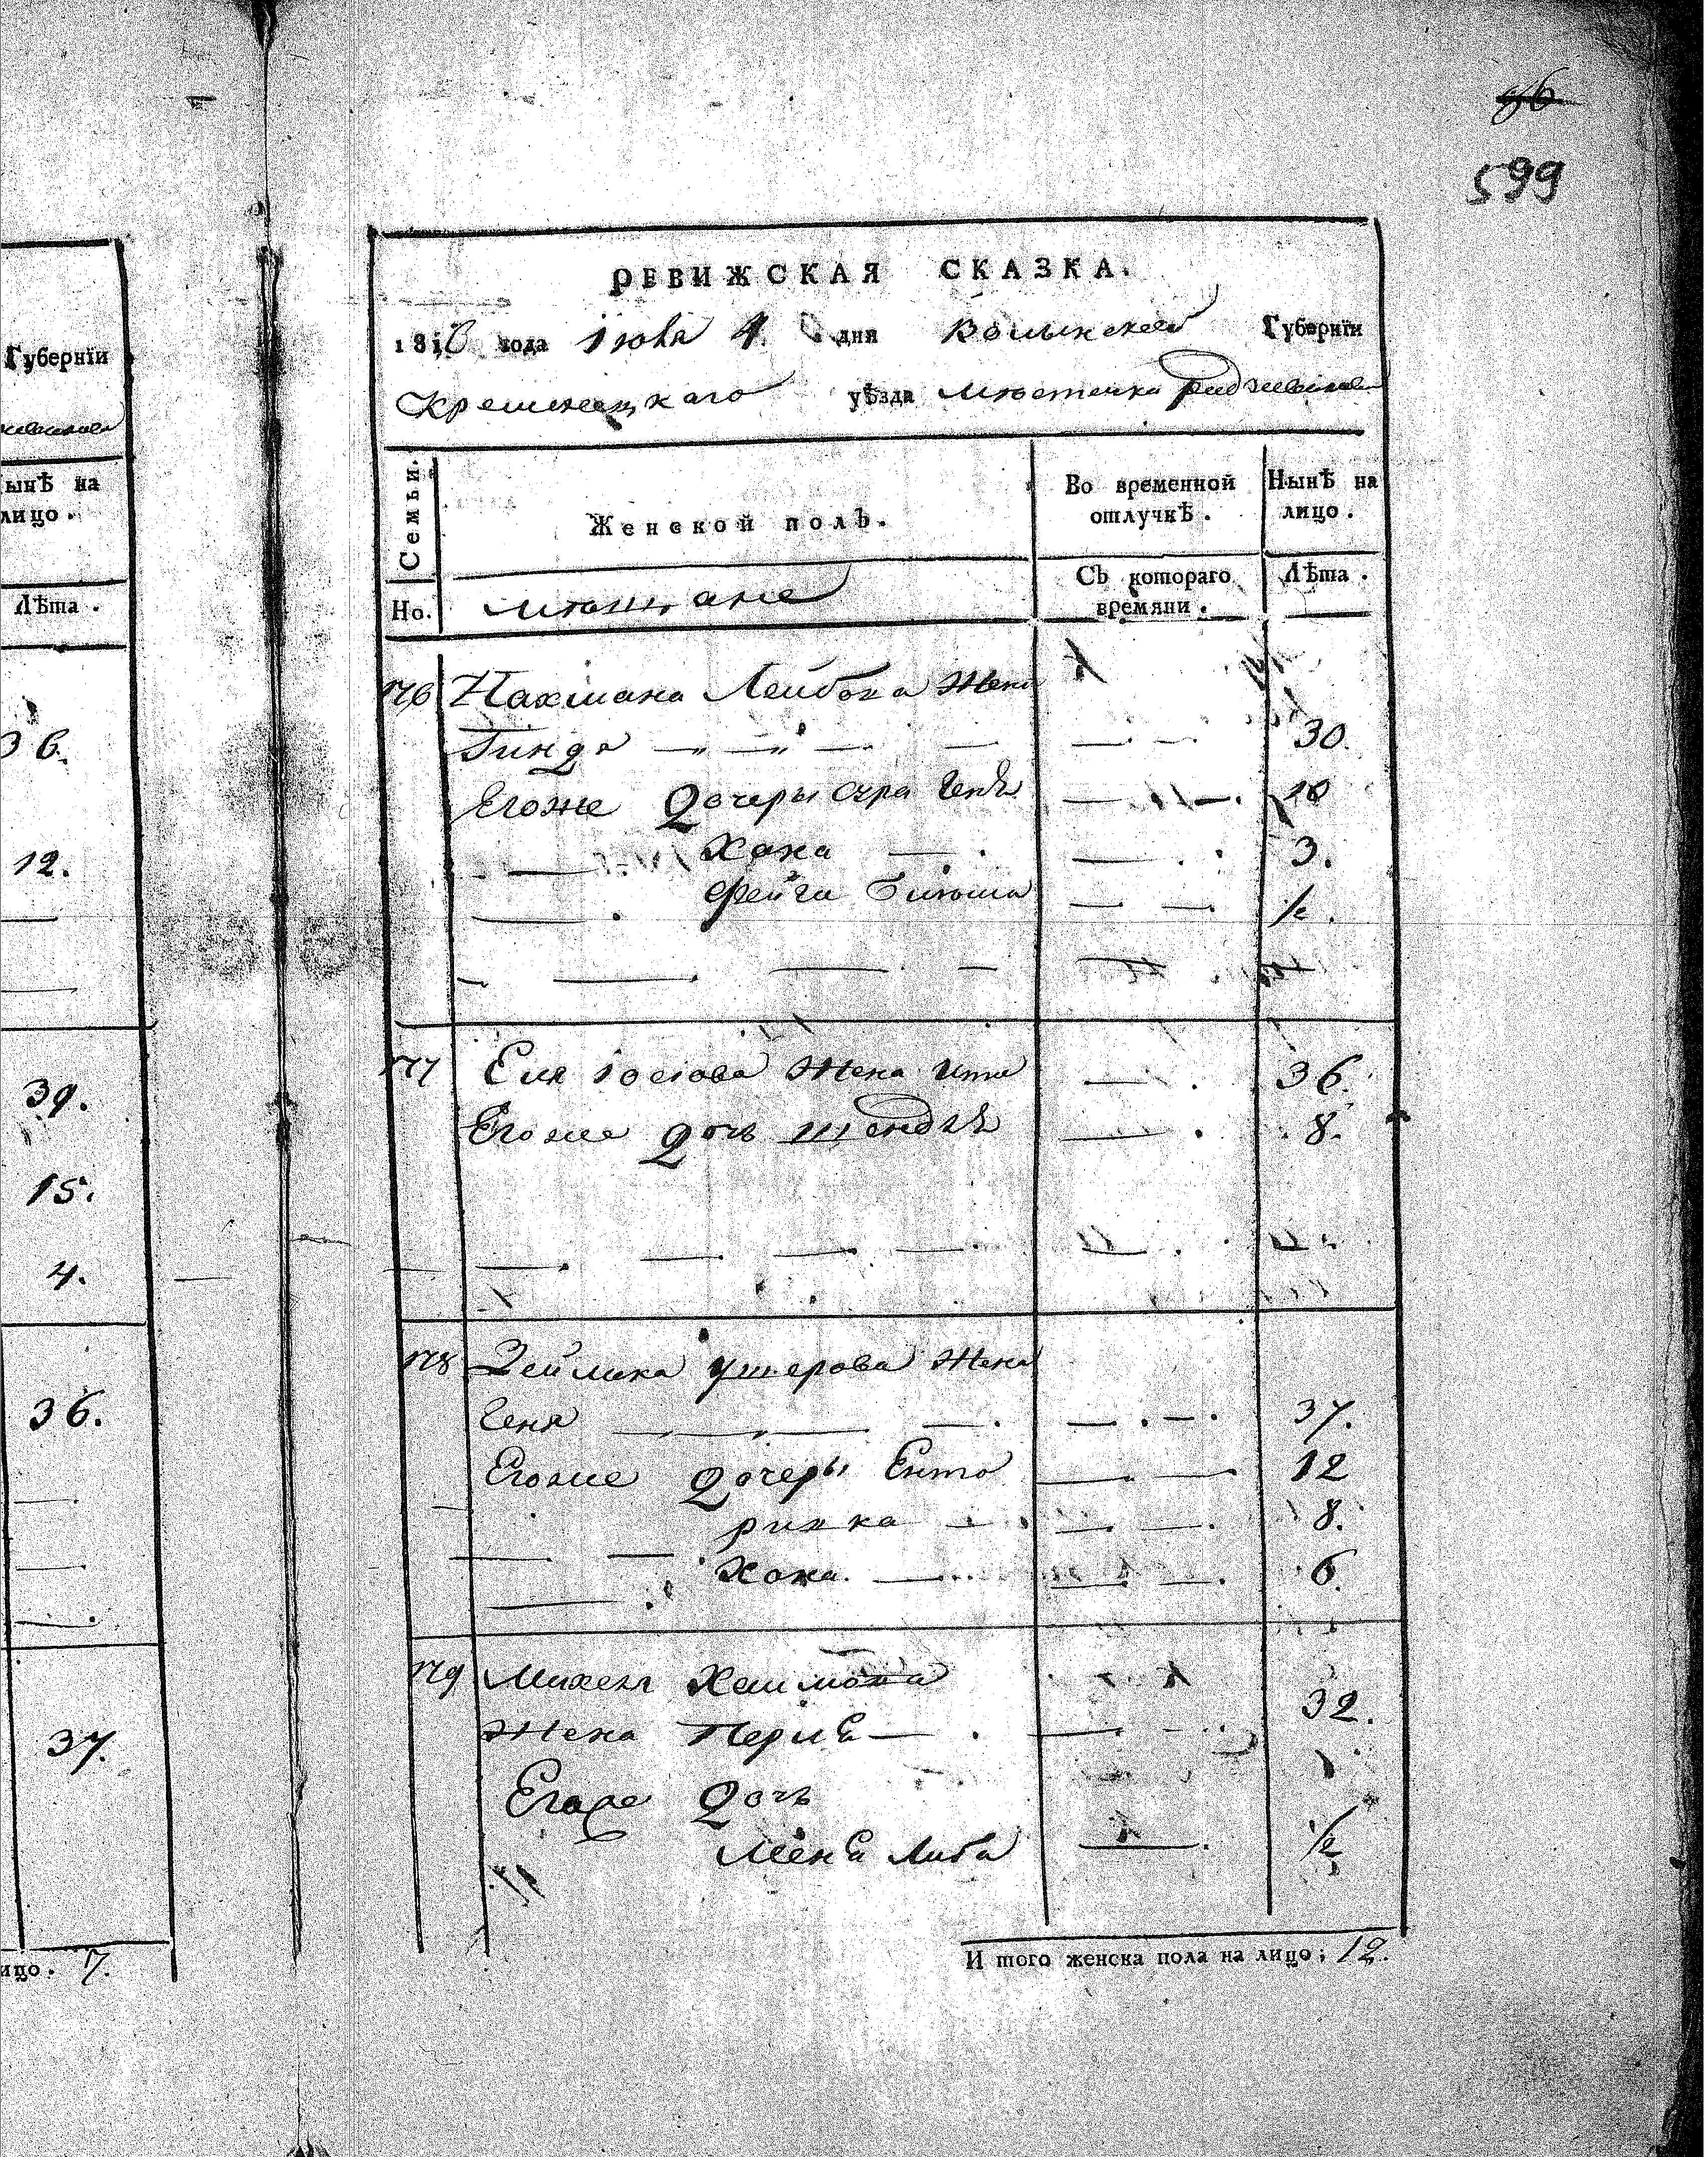 599
Губернїи
ынѣ на
лицо.
Лѣта.
36.
12.
39.
15.
4.
36.
37.
ицо. 7.
РЕВИЖСКАЯ СКАЗКА.
181 года Іюня 4. дня Волынской Губернїи
Кременецкаго уѣзда мѣстечка
Семьи. Женской полъ. Во временной отлучкѣ. Нынѣ на лицо.
Но. мѣщане Съ котораго времяни. Лѣта.
176 Нахмана Лейбова Жена
Гиндя 30.
Егоже Дочеры Сура 10
Хана 3.
Фейга 1/2.
177 Еля Іосіова Жена Ита 36.
Егоже Дочь Шендля 8.
178 Зейлика Ушерова Жена
Геня 37.
Егоже Дочеры Ента 12
ривка 8.
Хана. 6.
179 Михель Хаимова
Жена Перля 32.
Егоже Дочь
Либа 1/2
И того женска пола на лицо; 12.